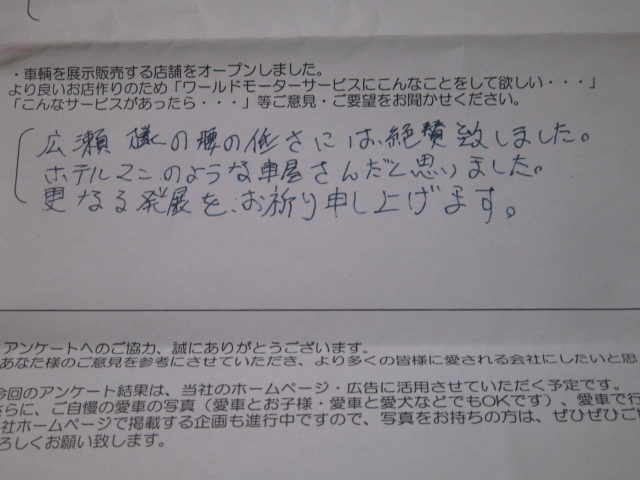 ・車輌を展示販売する店舗をオープンしました。
より良いお店作りのため「ワールドモーターサービスにこんなことをして欲しい・・・」
「こんなサービスがあったら・・・」等ご意見・ご要望をお聞かせください。
広瀬 様の腰の低さには、絶賛致しました。
ホテルマンのような車屋さんだと思いました。
更なる発展を、お祈り申し上げます。
アンケートへのご協力、誠にありがとうございます。
あなた様のご意見を参考にさせていただき、より多くの皆様に愛される会社にしたいと思
今回のアンケート結果は、当社のホームページ・広告に活用させていただく予定です。
さらに、ご自慢の愛車の写真（愛車とお子様・愛車と愛犬などでもOKです）、愛車で行
社ホームページで掲載する企画も進行中ですので、写真をお持ちの方は、ぜひぜひご
ろしくお願い致します。